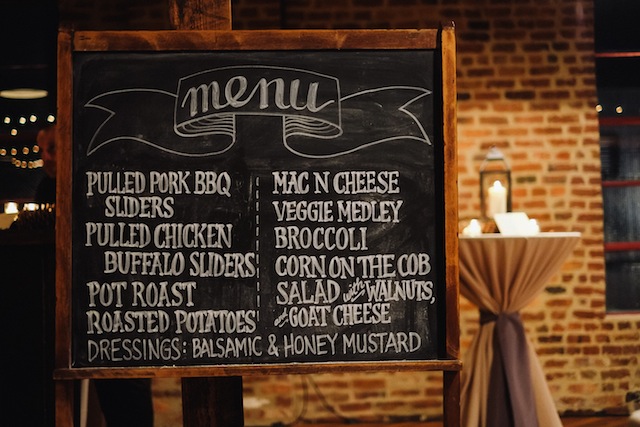 menu
PULLED PORK BBQ
SLIDERS
PULLED CHICKEN
BUFFALO SLIDERS
POT ROAST
ROASTED POTATOES
MAC N CHEESE
VEGGIE MEDLEY
BROCCOLI
CORN ON THE COB
SALAD with WALNUTS,
and GOAT CHEESE
DRESSINGS: BALSAMIC & HONEY MUSTARD